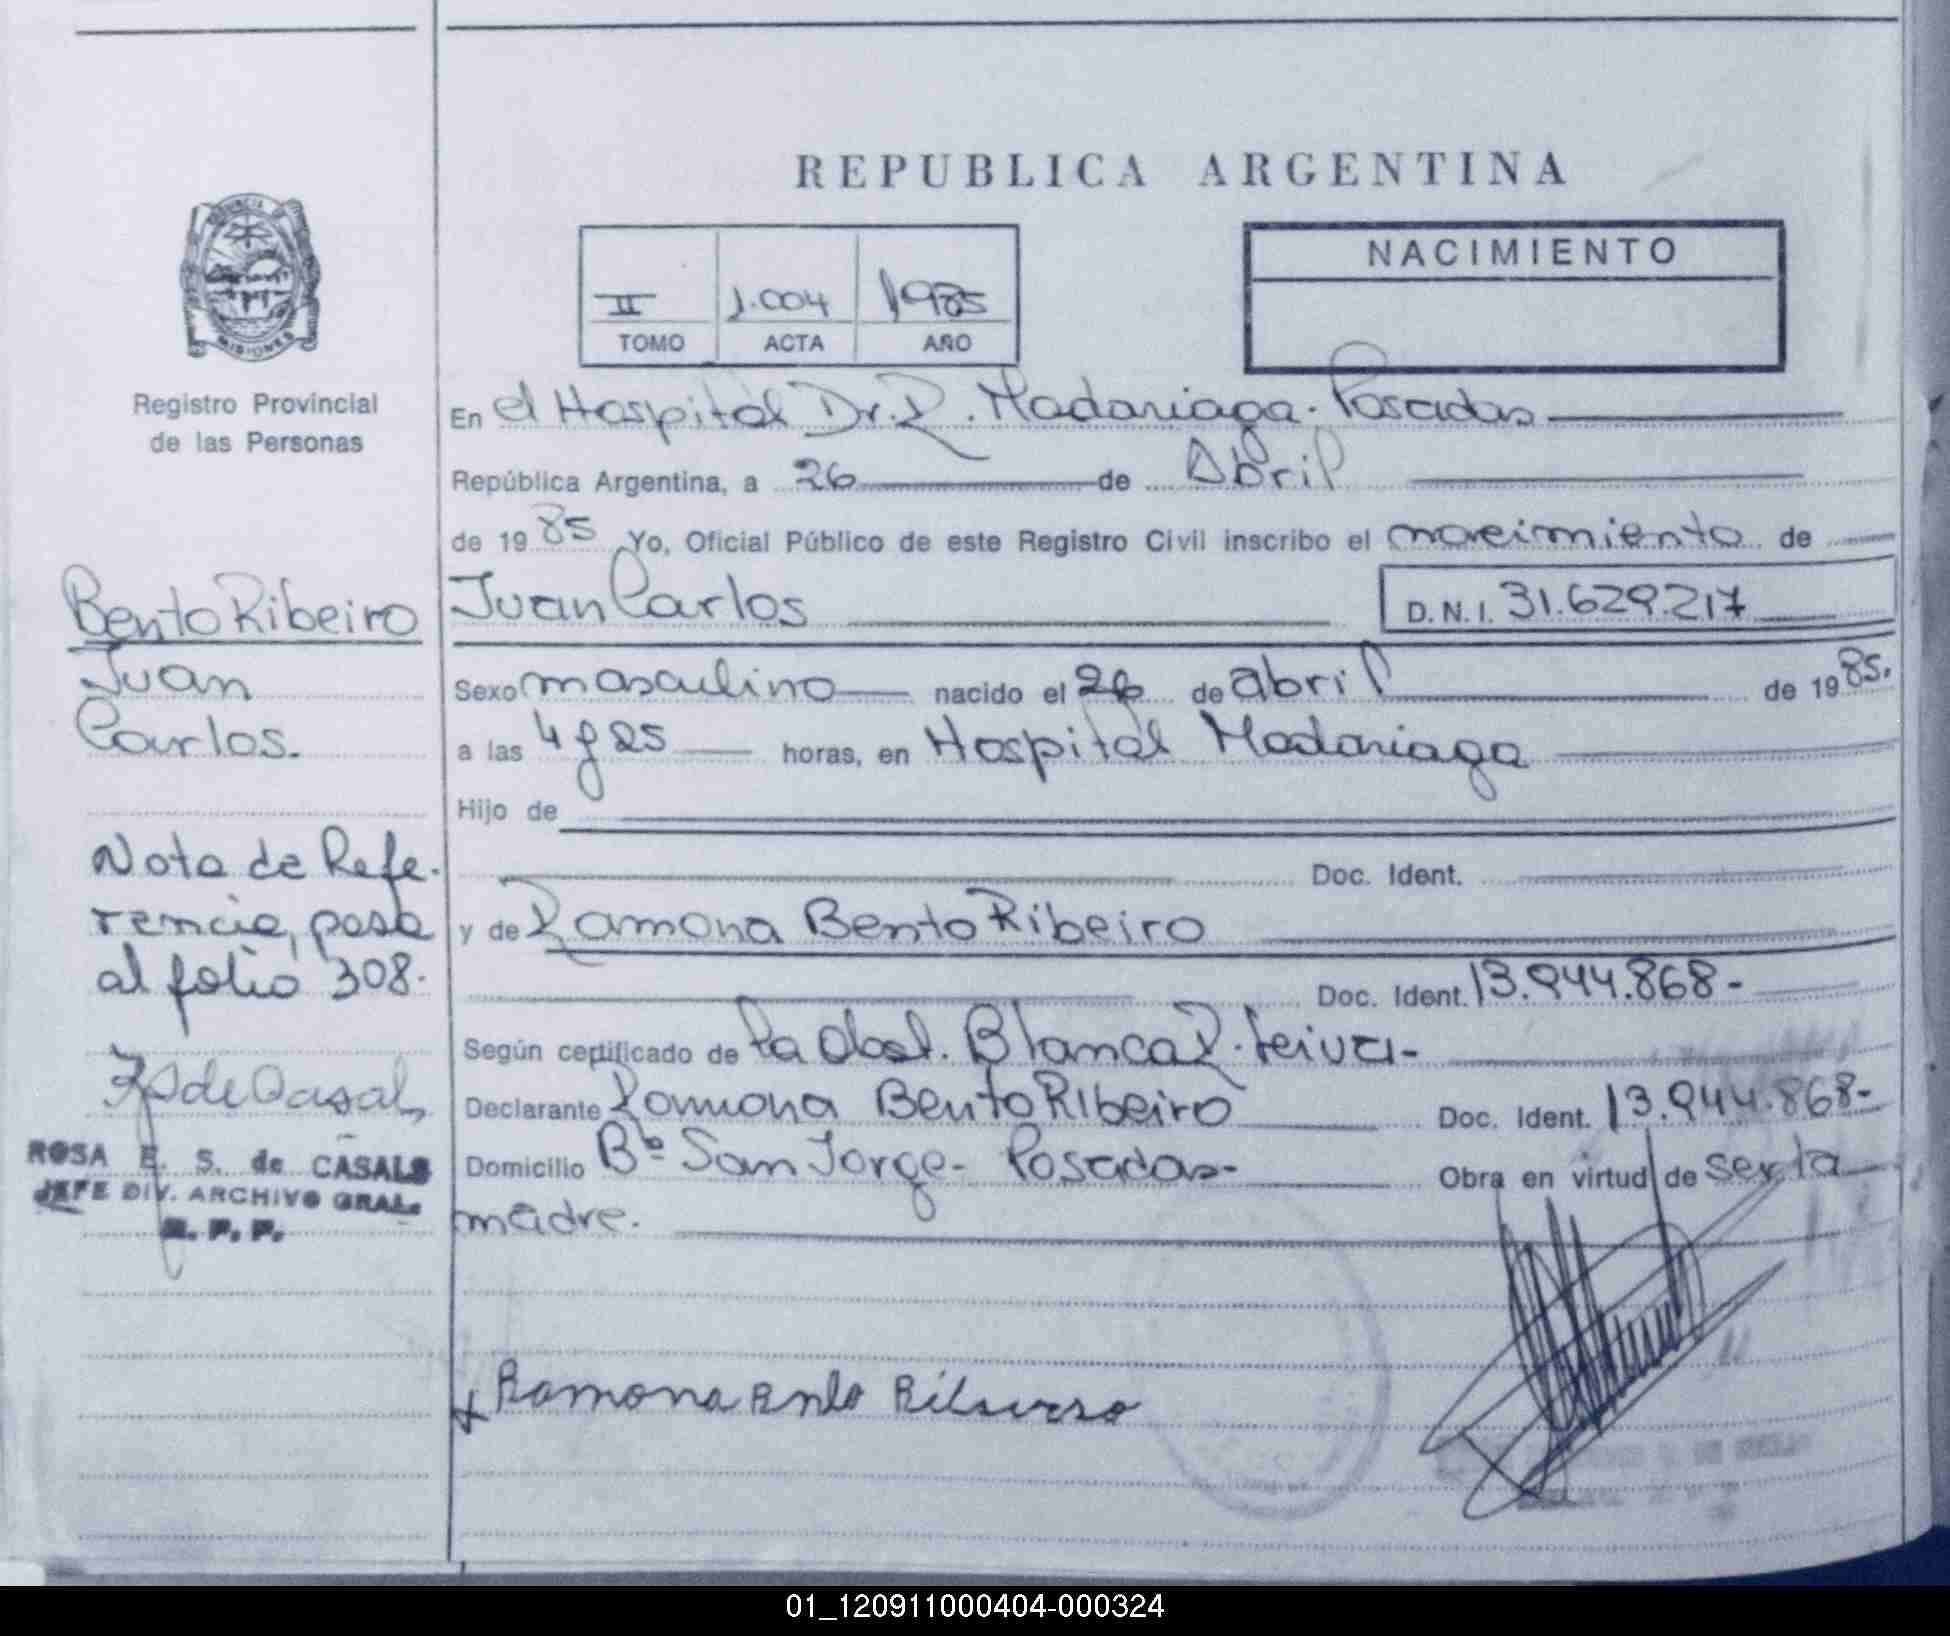 REPUBLICA ARGENTINA
PROVINCIA DE
MISIONES
Registro Provincial
de las Personas
II 1.004 1985
TOMO ACTA AÑO
NACIMIENTO
En el Hospital Dr. R. Madariaga. Posadas
República Argentina, a 26 de Abril
de 1985 Yo, Oficial Público de este Registro Civil inscribo el nacimiento de
Juan Carlos D.N.I. 31.629.217
Sexo masculino nacido el 26 de abril de 1985.
a las 4 y 25 horas, en Hospital Madariaga
Hijo de
Doc. Ident.
y de Ramona Bento Ribeiro
Doc. Ident. 13.944.868-
Según certificado de la Obst. Blanca R. Leiva-
Declarante Ramona Bento Ribeiro Doc. Ident. 13.944.868-
Domicilio Bº San Jorge- Posadas- Obra en virtud de ser la
madre.
Ramona Bento Ribeiro
Bento Ribeiro
Juan
Carlos.
Nota de Refe-
rencia, pasa
al folio 308.
ROSA E. S. de CASALS
JEFE DIV. ARCHIVO GRAL.
R. P. P.
01_120911000404-000324